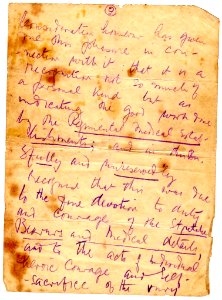 (3)
this decoration however has given
me this pleasure in con-
nection with it, that it is a
recognition not so much of
a personal kind but as
indicating the good work done
by the Regimental medical Estab-
lishments, and in Par-
fully and unreservedly
recognise that this was due
to the fine devotion to duty
and courage of the Stretcher
Bearers and Medical details,
and to the acts of individual
heroic courage and self-
-sacrifice of the very